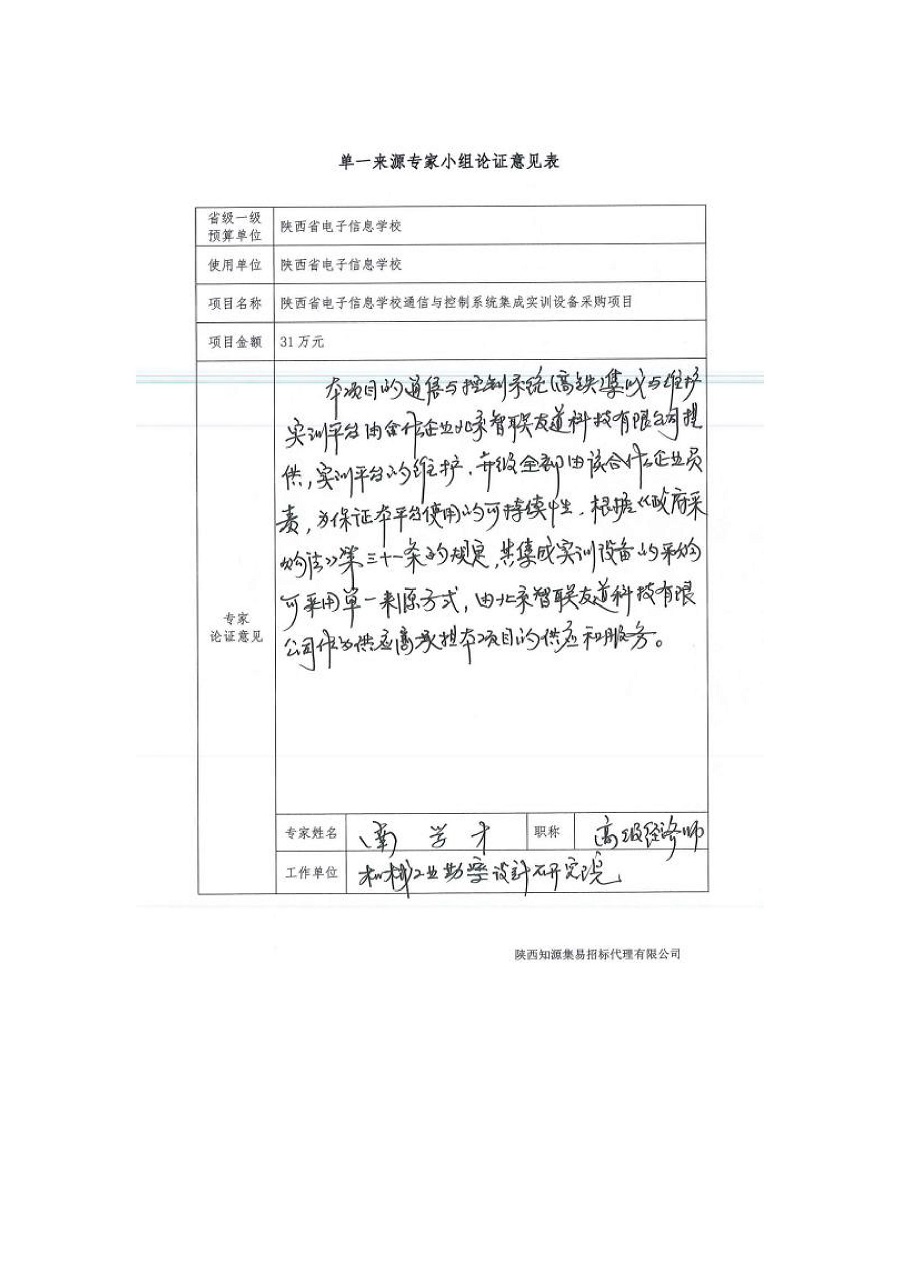 单一来源专家小组论证意见表
省级一级
预算单位
陕西省电子信息学校
使用单位
陕西省电子信息学校
项目名称
陕西省电子信息学校通信与控制系统集成实训设备采购项目
项目金额
31万元
专家
论证意见
本项目的通信与控制系统(高铁)集成与维护
实训平台由合作企业北京智联友道科技有限公司提
供，实训平台的维护、升级全部由该合作企业负
责，为保证本平台使用的可持续性，根据《政府采
购法》第三十一条的规定，其集成实训设备的采购
可采用单一来源方式，由北京智联友道科技有限
公司作为供应商承担本项目的供应和服务。
专家姓名
南学才
职称
高级经济师
工作单位
机械工业勘察设计研究院
陕西知源集易招标代理有限公司